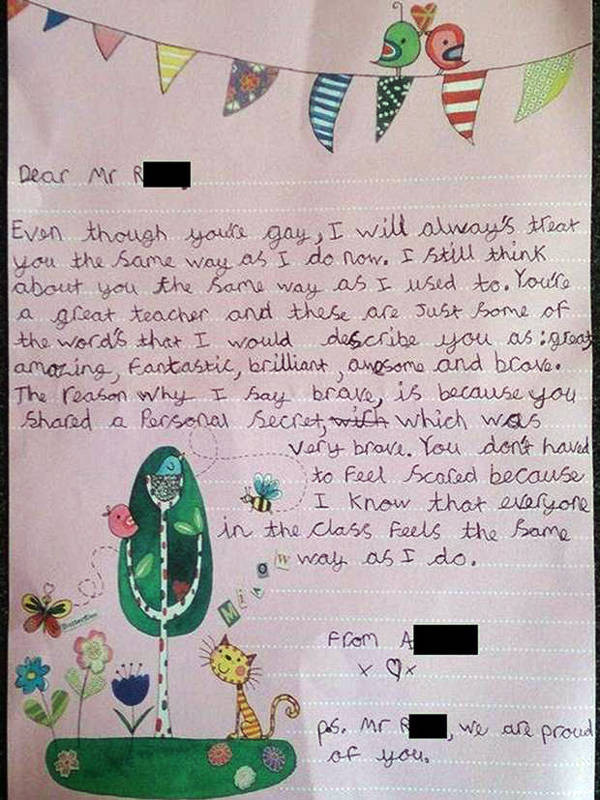 Dear Mr R
Even though you're gay, I will always's treat
you the same way as I do now. I still think
about you the same way as I used to. You're
a great teacher and these are just some of
the word's that I would describe you as: great,
amazing, fantastic, brilliant, awesome and brave.
The reason why I say brave, is because you
shared a Personal secret, with which was
very brave. You don't haved
to feel scared because
I know that everyone
in the class feels the same
way as I do.
Miaow
Butterflies
From A
x ♡ x
ps. Mr R, we are proud
of you.